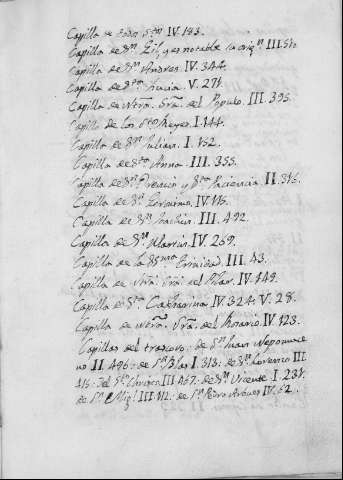 Capilla de todos Stos IV. 183.
Capilla de Sn Gil, y es notable su orign III. 510
Capilla de Sn Andres IV. 344.
Capilla de Sta Lucia V. 271.
Capilla de Ntra. Sra. del Populo. III. 395.
Capilla de los Stos Reyes. I. 144.
Capilla de Sn Julian. I. 152.
Capilla de Sta Anna. III. 355.
Capilla de Sn y Sta Paciencia II. 316.
Capilla de Sn Geronimo. IV. 115.
Capilla de Sn Joachin. III. 492.
Capilla de Sn Martin. IV. 269.
Capilla de la SSma Trinidad. III. 43.
Capilla de Ntra. Sra. del Pilar. IV. 149.
Capilla de Sta Catharina IV. 324. V. 28.
Capilla de Ntra. Sra. del Rosario. IV. 123.
Capillas del trascoro: de Sn Juan Nepomuce
no II. 496: de Sn Blas I. 313: de Sn Lorenzo III
415: del Sto Christo III 467: de Sn Vicente I. 231.
de Sn Migl III. 112. de Sn Pedro Arbues IV. 62.